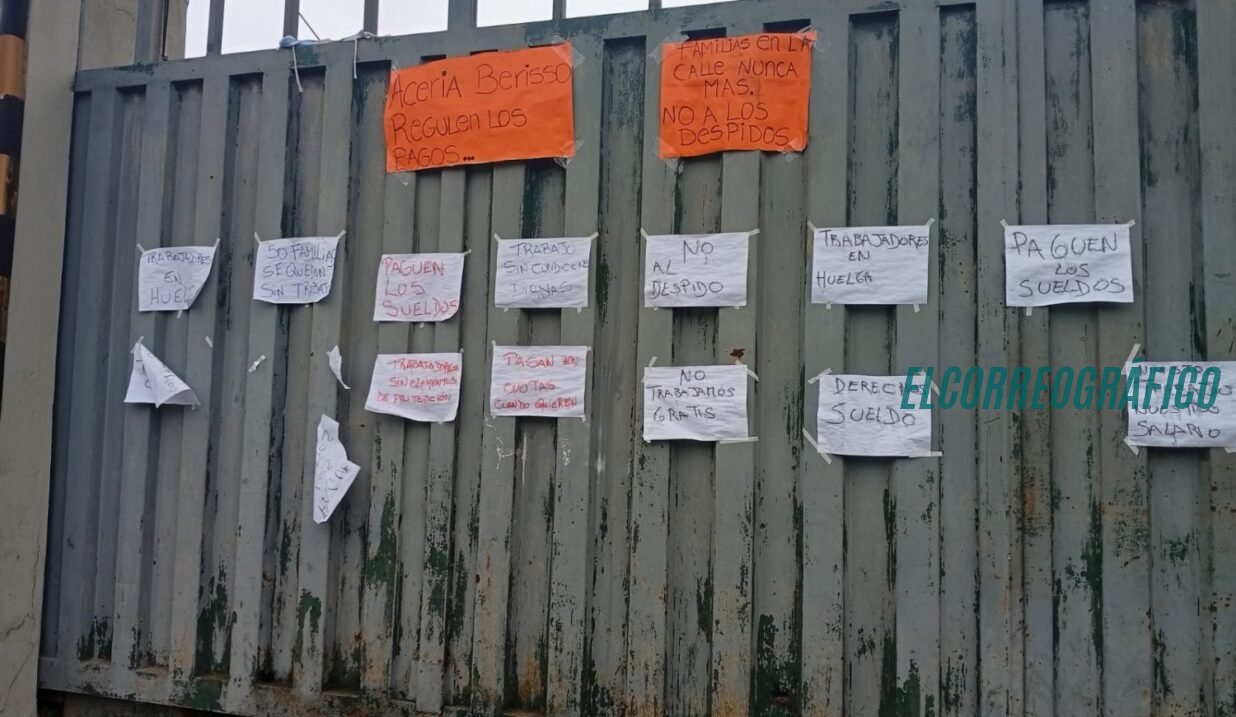 Aceria Berisso
Regulen los
pagos...
Familias en la
calle nunca
mas.
No a los
despidos
TRABAJADORES
EN
HUELG
50 FAMILIA
SE QUEDAN
SIN TRABAJ
PAGUEN
LOS
SUELDOS
TRABAJO
SIN CONDICIONE
DIGNAS
NO
AL
DESPIDO
TRABAJADORES
EN
HUELGA
PAGUEN
LOS
SUELDOS
TRABAJADORES
SIN ELEMENTOS
DE PROTECCION
PAGAN EN
CUOTAS
CUANDO QUIEREN
NO
TRABAJAMOS
GRATIS
DERECHO
SUELDO
NUESTRO
SALARIO
ELCORREOGRÁFICO